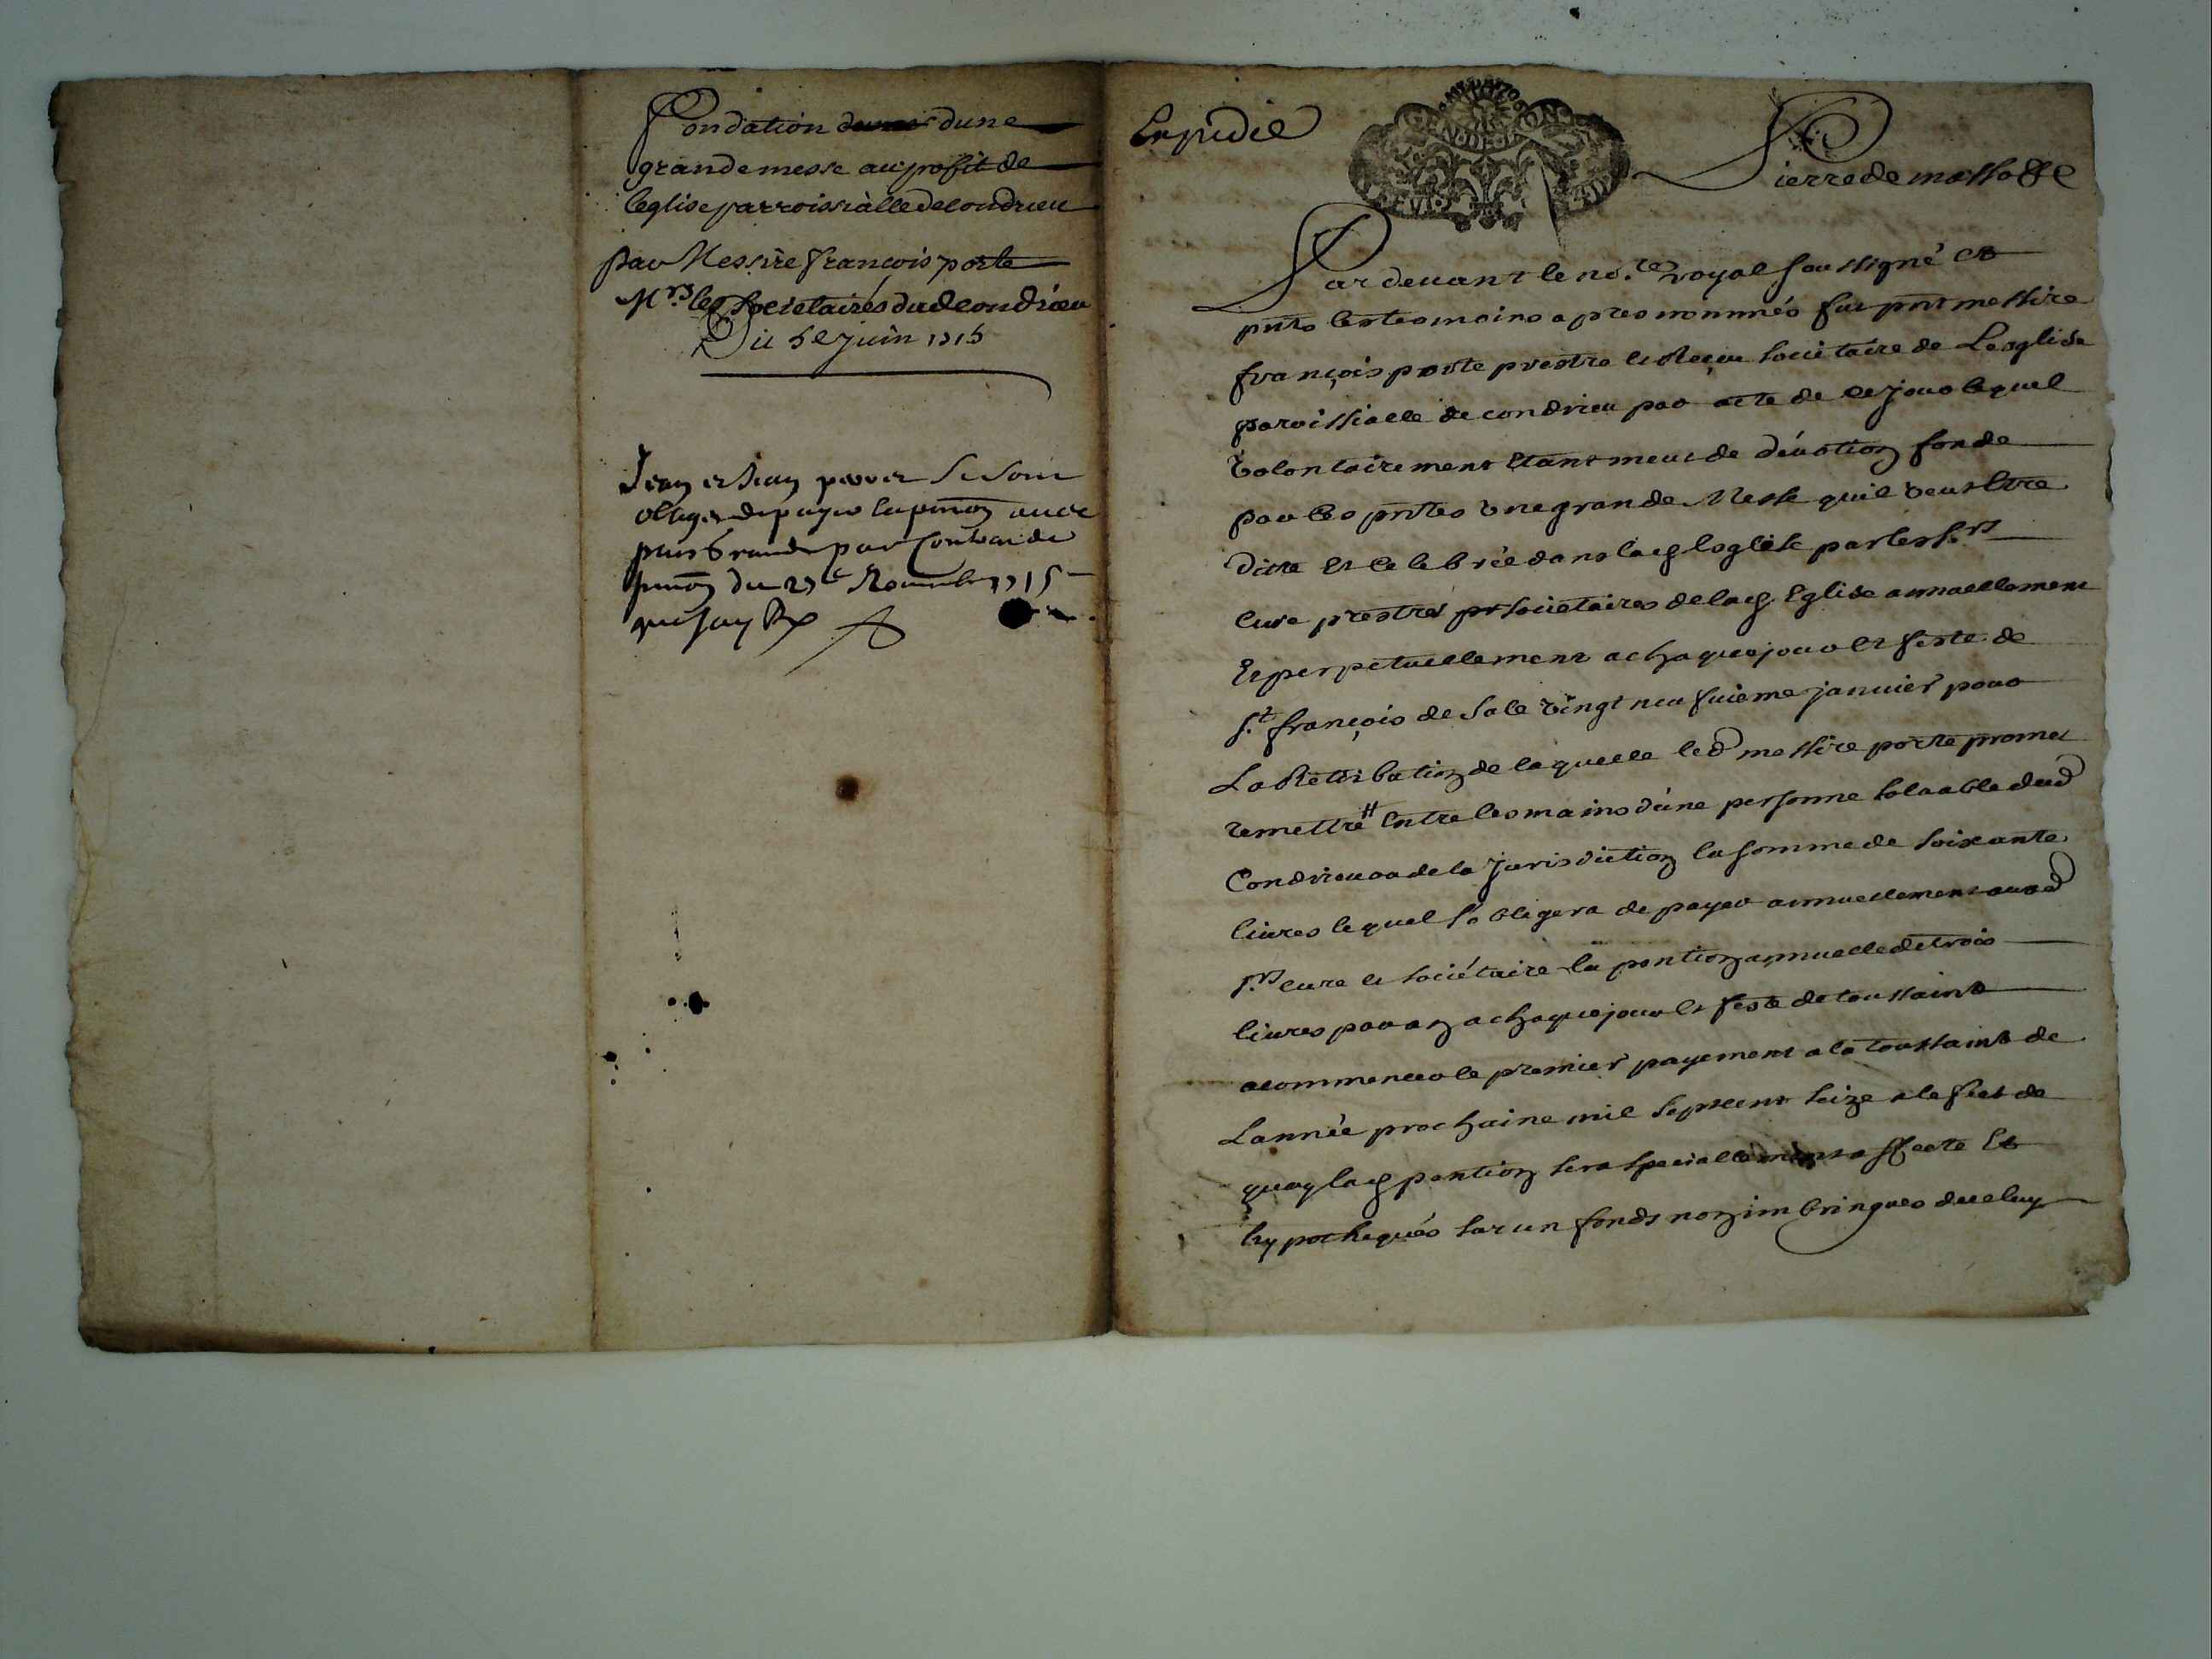 Fondation dune
grande messe au profit de
leglise parroissialle de condrieu
par Messire françois porte
Mrs les societaires dud condrieu
Du 5e juin 1715
Jean et Jean se sont
obligés de payer la pnon avec
par contrat de
pnon du 27e Novembre 1715
Expedié
GEN DE LYON
Pierre de
Par devant le nore royal soussigné et
pnts les tesmoins apres nommés fut pnt messire
françois porte prestre et Reçeu societaire de Lesglise
paroissialle de condrieu par acte de ce jour lequel
volontairement etant meut de dévotion fonde
par les pntes une grande Messe quil veut estre
ditte et celebrée dans lad esglise par les srs
cure prestres societaires de lad Eglise annuellement
Et perpetuellement a chaque jour et feste de
st françois de sale vingt neufvieme janvier pour
La Retribution de laquelle led messire porte promet
remettre # entre les mains d'une personne solvable dud
Condrieu ou de la Jurisdiction la somme de soixante
livres lequel s'obligera de payer annuellement auxd
srs cure et sociétaire la pention annuelle de trois
livres par an a chaque jour et feste de toussaint
a commencer le premier payement a la toussaint de
Lannée prochaine mil sept cent seize a leffet de
quoy lad pention sera specialement affecte Et
hypothequés sur un fonds non imbringués de celuy